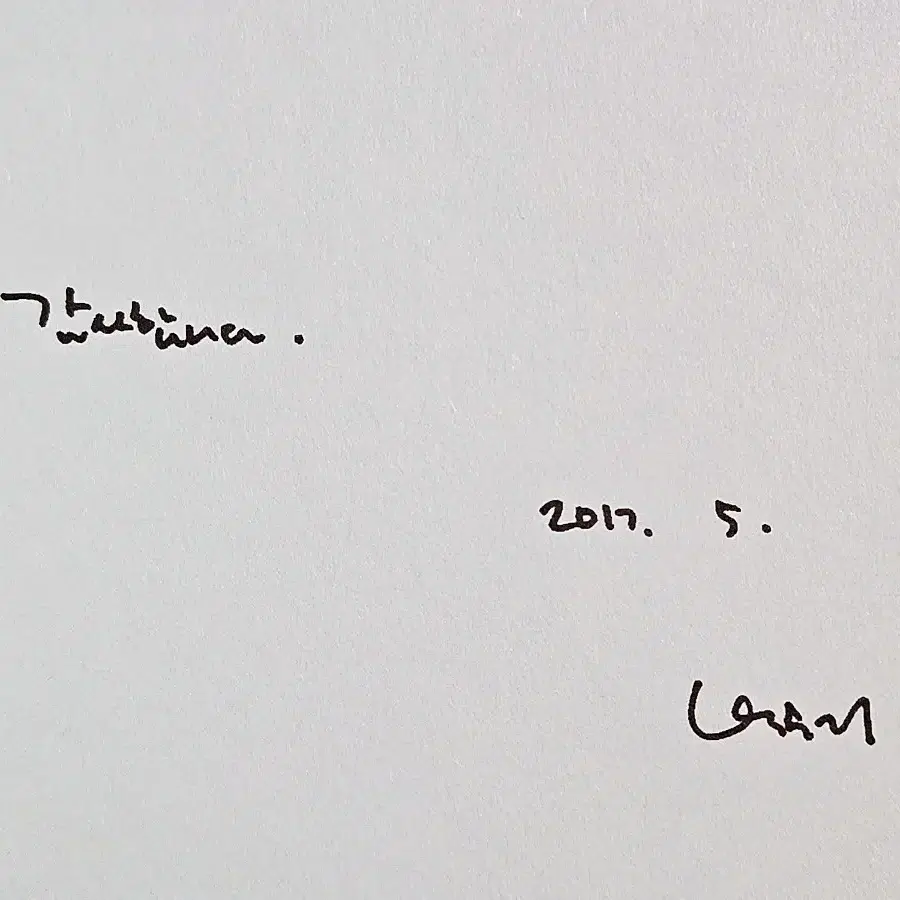 감사합니다.
2017. 5.